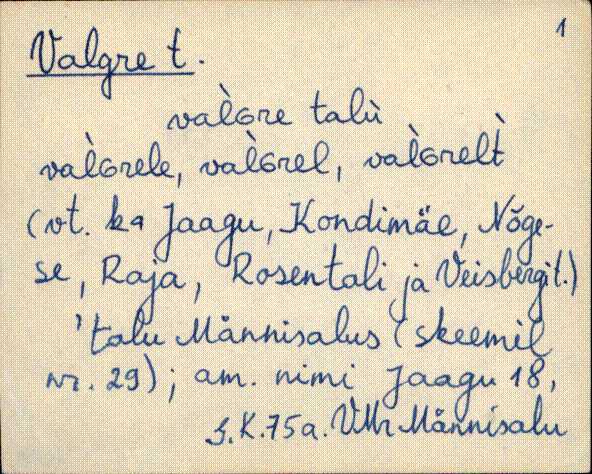 1
Valgre t.
val̀ɢre talù
val̀ɢrele, val̀ɢrel, val̀ɢrelt̀
(vt. ka Jaagu, Kondimäe, Nõge-
se, Raja, Rosentali ja Veisbergi t.)
'talu Männisalus (skeemil
nr. 29); am. nimi Jaagu 18,
S.K.75a. VMr Männisalu